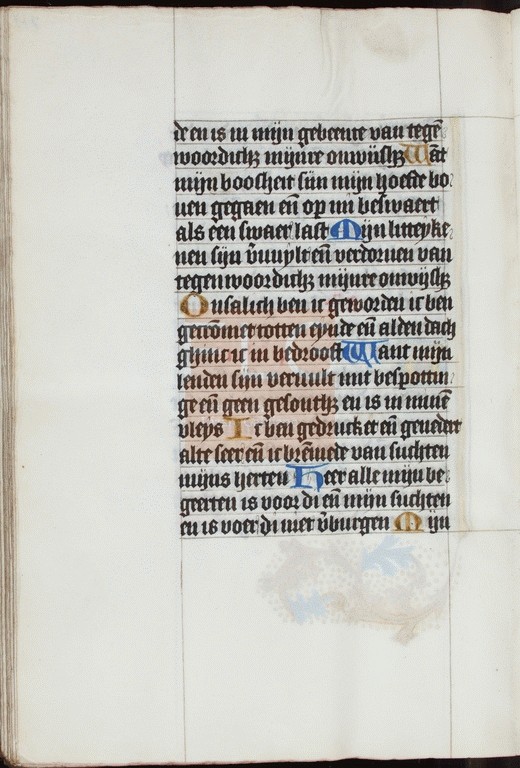 de en is in mijn gebeente van tegē
woordichz mijnre onwijshz Wāt
mijn boosheit sijn mijn hoefde bo
uen gegaen eñ op mi beswaert
als een swaer last Mijn litteyke
nen sijn v̄uuylt eñ verdoruen van
tegenwoordichz mijnre onwijshz
Onsalich ben ic geworden ic ben
gecrōmet totten eynde eñ alden dach
ghinc ic in bedrooft Want mijn
lenden sijn veruult mit bespottin
ge eñ geen gesonthz en is in minē
vleys Ic ben gedrucket eñ geuedert
alte seer eñ ic brēmede van suchten
mijns herten Heer alle mijn be
geerten is voor di eñ mijn suchten
en is voer di niet v̄burgen Mijn